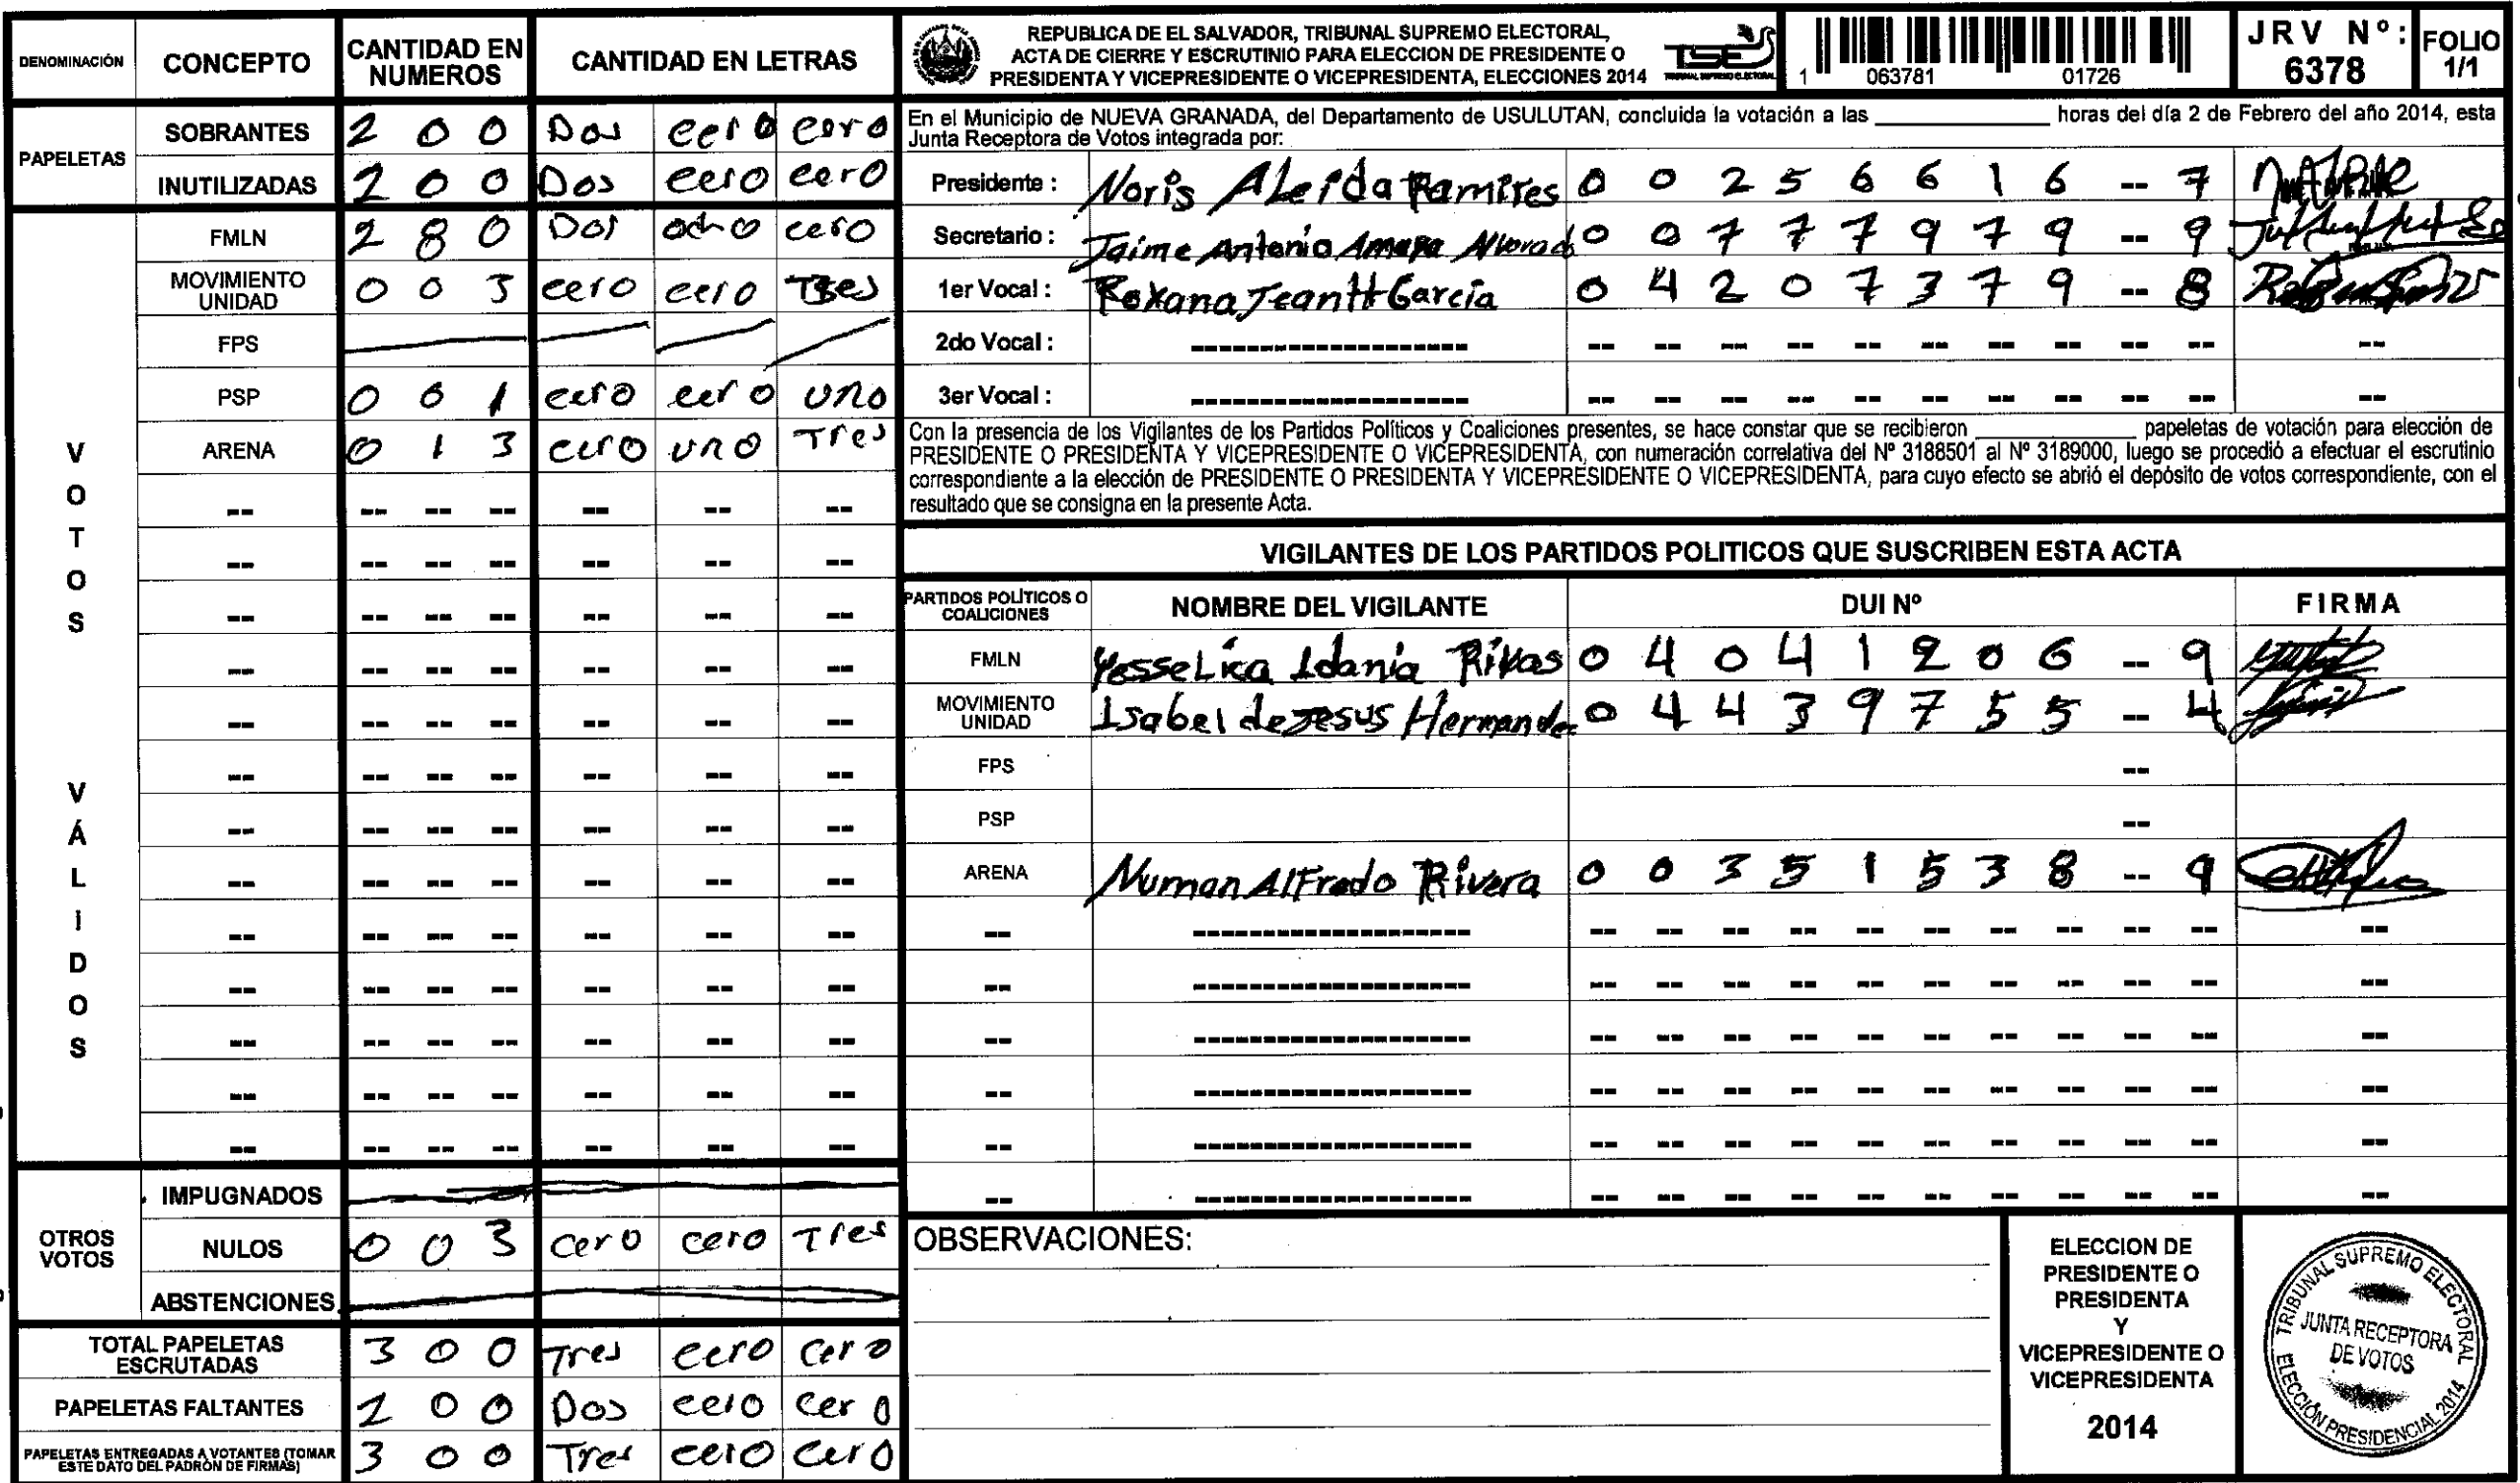 DENOMINACIÓN CONCEPTO CANTIDAD EN NUMEROS CANTIDAD EN LETRAS
PAPELETAS
SOBRANTES 2 0 0 Dos cero cero
INUTILIZADAS 2 0 0 Dos cero cero
VOTOS VÁLIDOS
FMLN 2 8 0 Dos ocho cero
MOVIMIENTO UNIDAD 0 0 3 cero cero Tres
FPS
PSP 0 0 1 cero cero uno
ARENA 0 1 3 cero uno Tres
OTROS VOTOS
IMPUGNADOS
NULOS 0 0 3 cero cero Tres
ABSTENCIONES
TOTAL PAPELETAS ESCRUTADAS 3 0 0 Tres cero cero
PAPELETAS FALTANTES 2 0 0 Dos cero cero
PAPELETAS ENTREGADAS A VOTANTES (TOMAR ESTE DATO DEL PADRÓN DE FIRMAS) 3 0 0 Tres cero cero
REPUBLICA DE EL SALVADOR, TRIBUNAL SUPREMO ELECTORAL,
ACTA DE CIERRE Y ESCRUTINIO PARA ELECCION DE PRESIDENTE O
PRESIDENTA Y VICEPRESIDENTE O VICEPRESIDENTA, ELECCIONES 2014
TSE
TRIBUNAL SUPREMO ELECTORAL
1 063781 01726
JRV Nº: 6378
FOLIO 1/1
En el Municipio de NUEVA GRANADA, del Departamento de USULUTAN, concluida la votación a las ____ horas del día 2 de Febrero del año 2014, esta
Junta Receptora de Votos integrada por:
Presidente : Noris ALeida Ramires 0 0 2 5 6 6 1 6 -- 7
Secretario : Jaime Antonio Amaya Alvarado 0 0 7 7 7 9 7 9 -- 9
1er Vocal : Roxana Jeantt García 0 4 2 0 7 3 7 9 -- 8
2do Vocal :
3er Vocal :
Con la presencia de los Vigilantes de los Partidos Políticos y Coaliciones presentes, se hace constar que se recibieron ____ papeletas de votación para elección de
PRESIDENTE O PRESIDENTA Y VICEPRESIDENTE O VICEPRESIDENTA, con numeración correlativa del Nº 3188501 al Nº 3189000, luego se procedió a efectuar el escrutinio
correspondiente a la elección de PRESIDENTE O PRESIDENTA Y VICEPRESIDENTE O VICEPRESIDENTA, para cuyo efecto se abrió el depósito de votos correspondiente, con el
resultado que se consigna en la presente Acta.
VIGILANTES DE LOS PARTIDOS POLITICOS QUE SUSCRIBEN ESTA ACTA
PARTIDOS POLÍTICOS O COALICIONES NOMBRE DEL VIGILANTE DUI Nº FIRMA
FMLN YesseLica Idania Rivas 0 4 0 4 1 2 0 6 -- 9
MOVIMIENTO UNIDAD Isabel de Jesus Hernande 0 4 4 3 9 7 5 5 -- 4
FPS --
PSP --
ARENA Numan AlFredo Rivera 0 0 3 5 1 5 3 8 -- 9
OBSERVACIONES:
ELECCION DE
PRESIDENTE O
PRESIDENTA
Y
VICEPRESIDENTE O
VICEPRESIDENTA
2014
TRIBUNAL SUPREMO ELECTORAL
JUNTA RECEPTORA
DE VOTOS
ELECCIÓN PRESIDENCIAL 2014